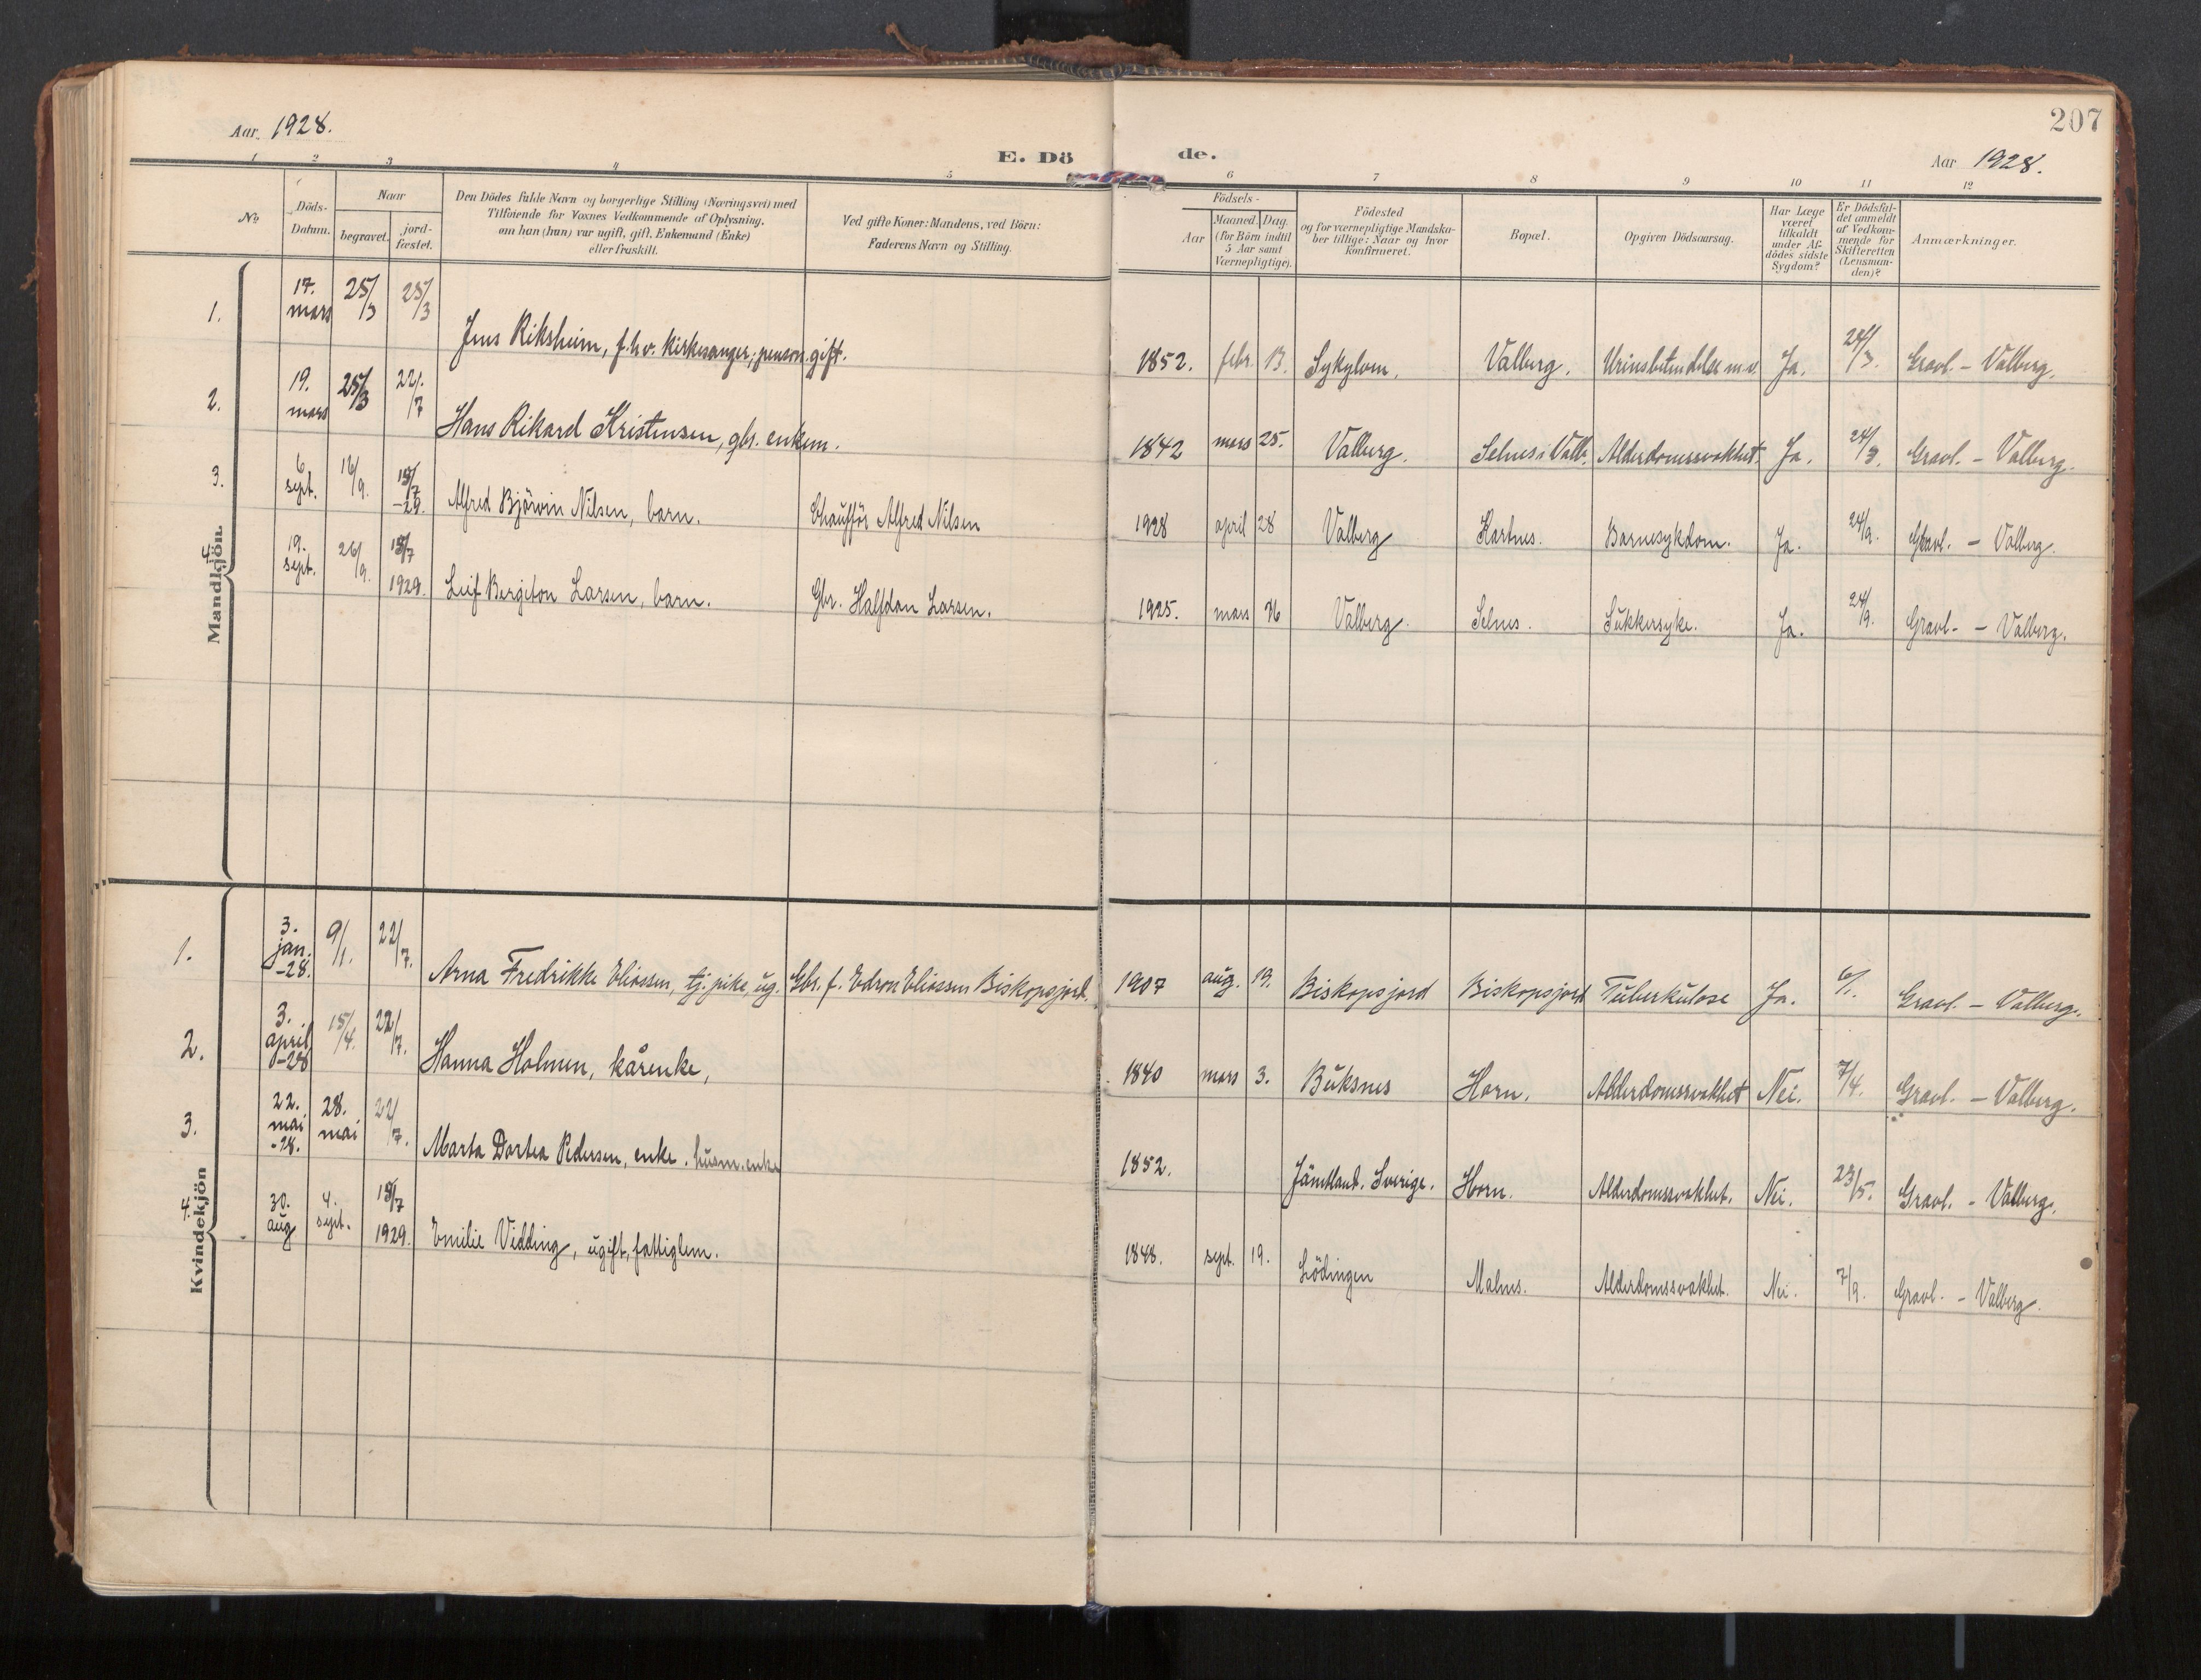 207
Aar 1928.
E. Dö de.
Aar 1928.
1 2 3 4 5 6 7 8 9 10 11 12
No.
Döds-
Datum.
Naar
begravet.
jord-
fæstet.
Den Dödes fulde Navn og borgerlige Stilling (Næringsvei) med
Tilföiende for Voxnes Vedkommende af Oplysning,
om han (hun) var ugift, gift, Enkemand (Enke)
eller fraskilt.
Ved gifte Koner: Mandens, ved Börn:
Faderens Navn og Stilling.
Födsels-
Aar
Maaned. Dag.
(for Börn indtil
5 Aar samt
Værnepligtige).
Födested
og for værnepligtige Mandska-
ber tillige: Naar og hvor
Konfirmeret.
Bopæl.
Opgiven Dödsaarsag.
Har Læge
været
tilkaldt
under Af-
dödes sidste
Sygdom?
Er Dödsfal-
det anmeldt
af Vedkom-
mende for
Skifteretten
(Lensman-
den)?
Anmærkninger.
Mandkjön.
1. 17. mars 25/3 25/3 Jens Riksheim, f.hv. kirkesanger, pension. gift. 1852. febr. 13. Sykylven. Valberg. Ja. 24/3. Gravl. - Valberg.
2. 19. mars 25/3 22/7 Hans Rikard Kristensen, gbr. enkem. 1842 mars 25. Valberg. Selnes i Valb. Alderdomssvakhet. Ja. 24/3. Gravl. - Valberg.
3. 6 sept. 16/9. 15/7 -29. Alfred Björvin Nilsen, barn. Chaufför Alfred Nilsen 1928 april 28 Valberg Hartnes. Barnesykdom. Ja. 24/9. Gravl. - Valberg.
4. 19. sept. 26/9. 15/7 1929. Leif Bergiton Larsen, barn. Gbr. Halfdan Larsen. 1925. mars Valberg. Selnes. Sukkersyke. Ja. 24/9. Gravl. - Valberg.
Kvindekjön
1. 3. jan. -28. 9/1. 22/7. Arna Fredrikke Eliassen, tj. pike, ug. Gbr. f. Edron Eliassen Biskopsjord. 1907 aug. 19. Biskopsjord Biskopsjord Tuberkulose Ja. 6/1. Gravl. - Valberg.
2. 3. april -28 15/4. 22/7. Hanna Holmen, kårenke, 1840 mars 3. Buksnes Horn. Alderdomssvakhet Nei. 7/4. Gravl. - Valberg.
3. 22. mai -28. 28. mai 22/7. Marta Dortea Pedersen, enke. husm. enke 1852. Jämtland. Sverige. Horn. Alderdomssvakhet. Nei. 23/5. Gravl. - Valberg.
4. 30. aug 4. sept. 15/7 1929. Emilie Vidding, ugift, fattiglem. 1848. sept. 19. Lödingen Malnes. Alderdomssvakhet. Nei. 7/9. Gravl. - Valberg.